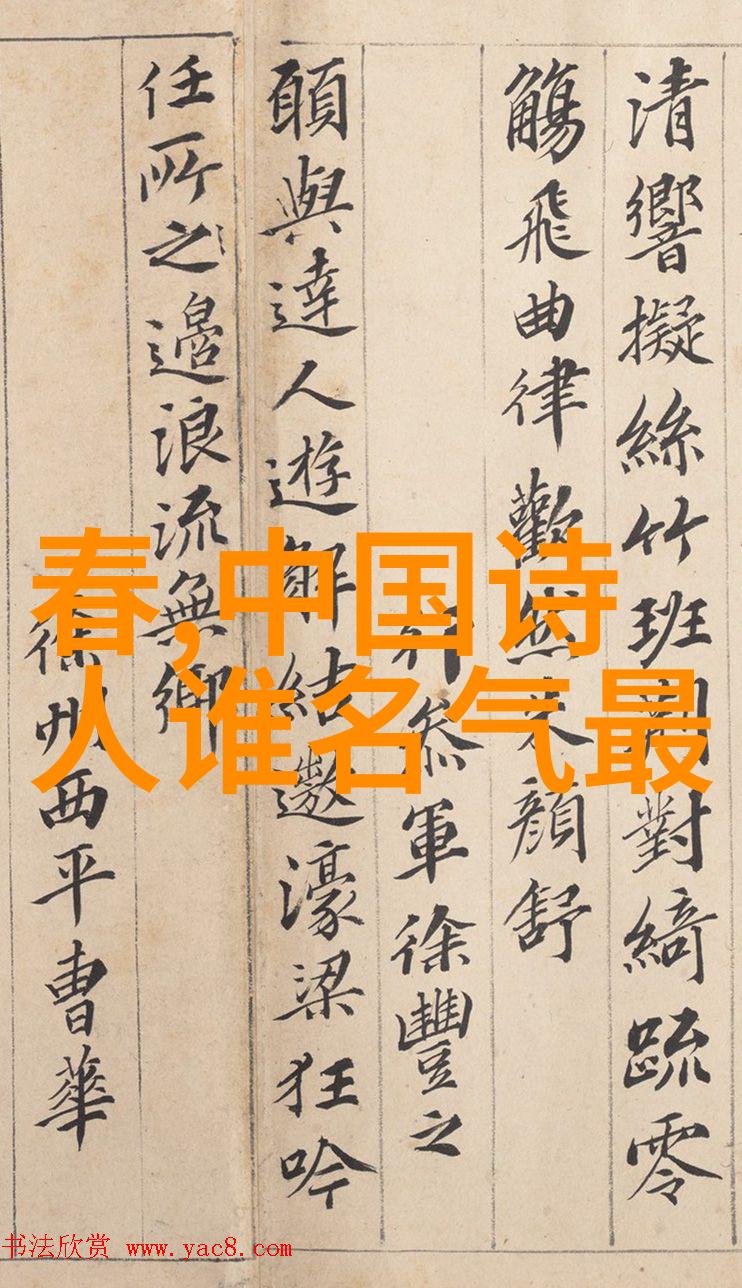 清響擬絲竹班荆對綺疏零
觴飛曲律歡然朱顏舒
行叅軍徐豐之
願與達人遊解結遨濠梁狂吟
任所之邉浪流無鄉
徐州西平曹華
春,中国诗
人谁名气最
书法欣赏 www.yac8.com